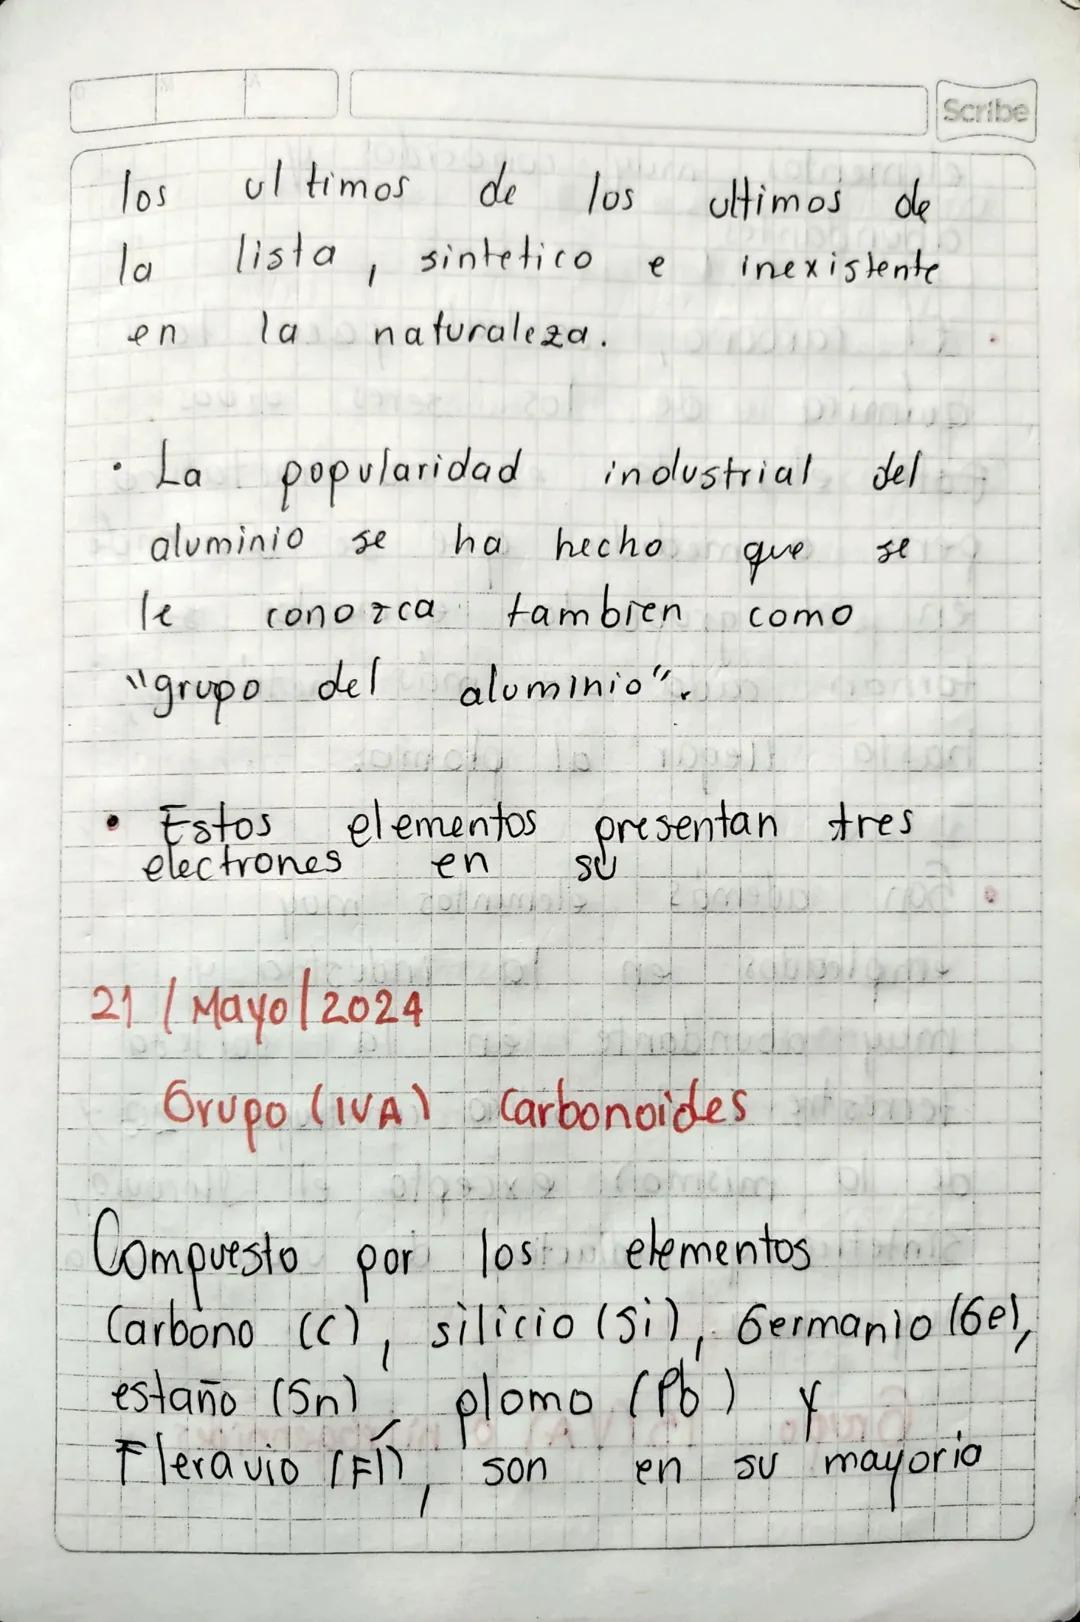 Scribe
los ultimos de los ultimos de
la lista, sintetico e inexistente
en la naturaleza.
• La popularidad industrial del
aluminio se ha hecho que se
le conozca tambien como
"grupo del aluminio".
• Estos elementos presentan tres
electrones en su
21 / Mayo / 2024
Grupo (IVA) Carbonoides
Compuesto por los elementos
Carbono (C), silicio (Si), Germanio (Ge),
estaño (Sn), plomo (Pb) y
Fleravio (Fl), son en su mayoria